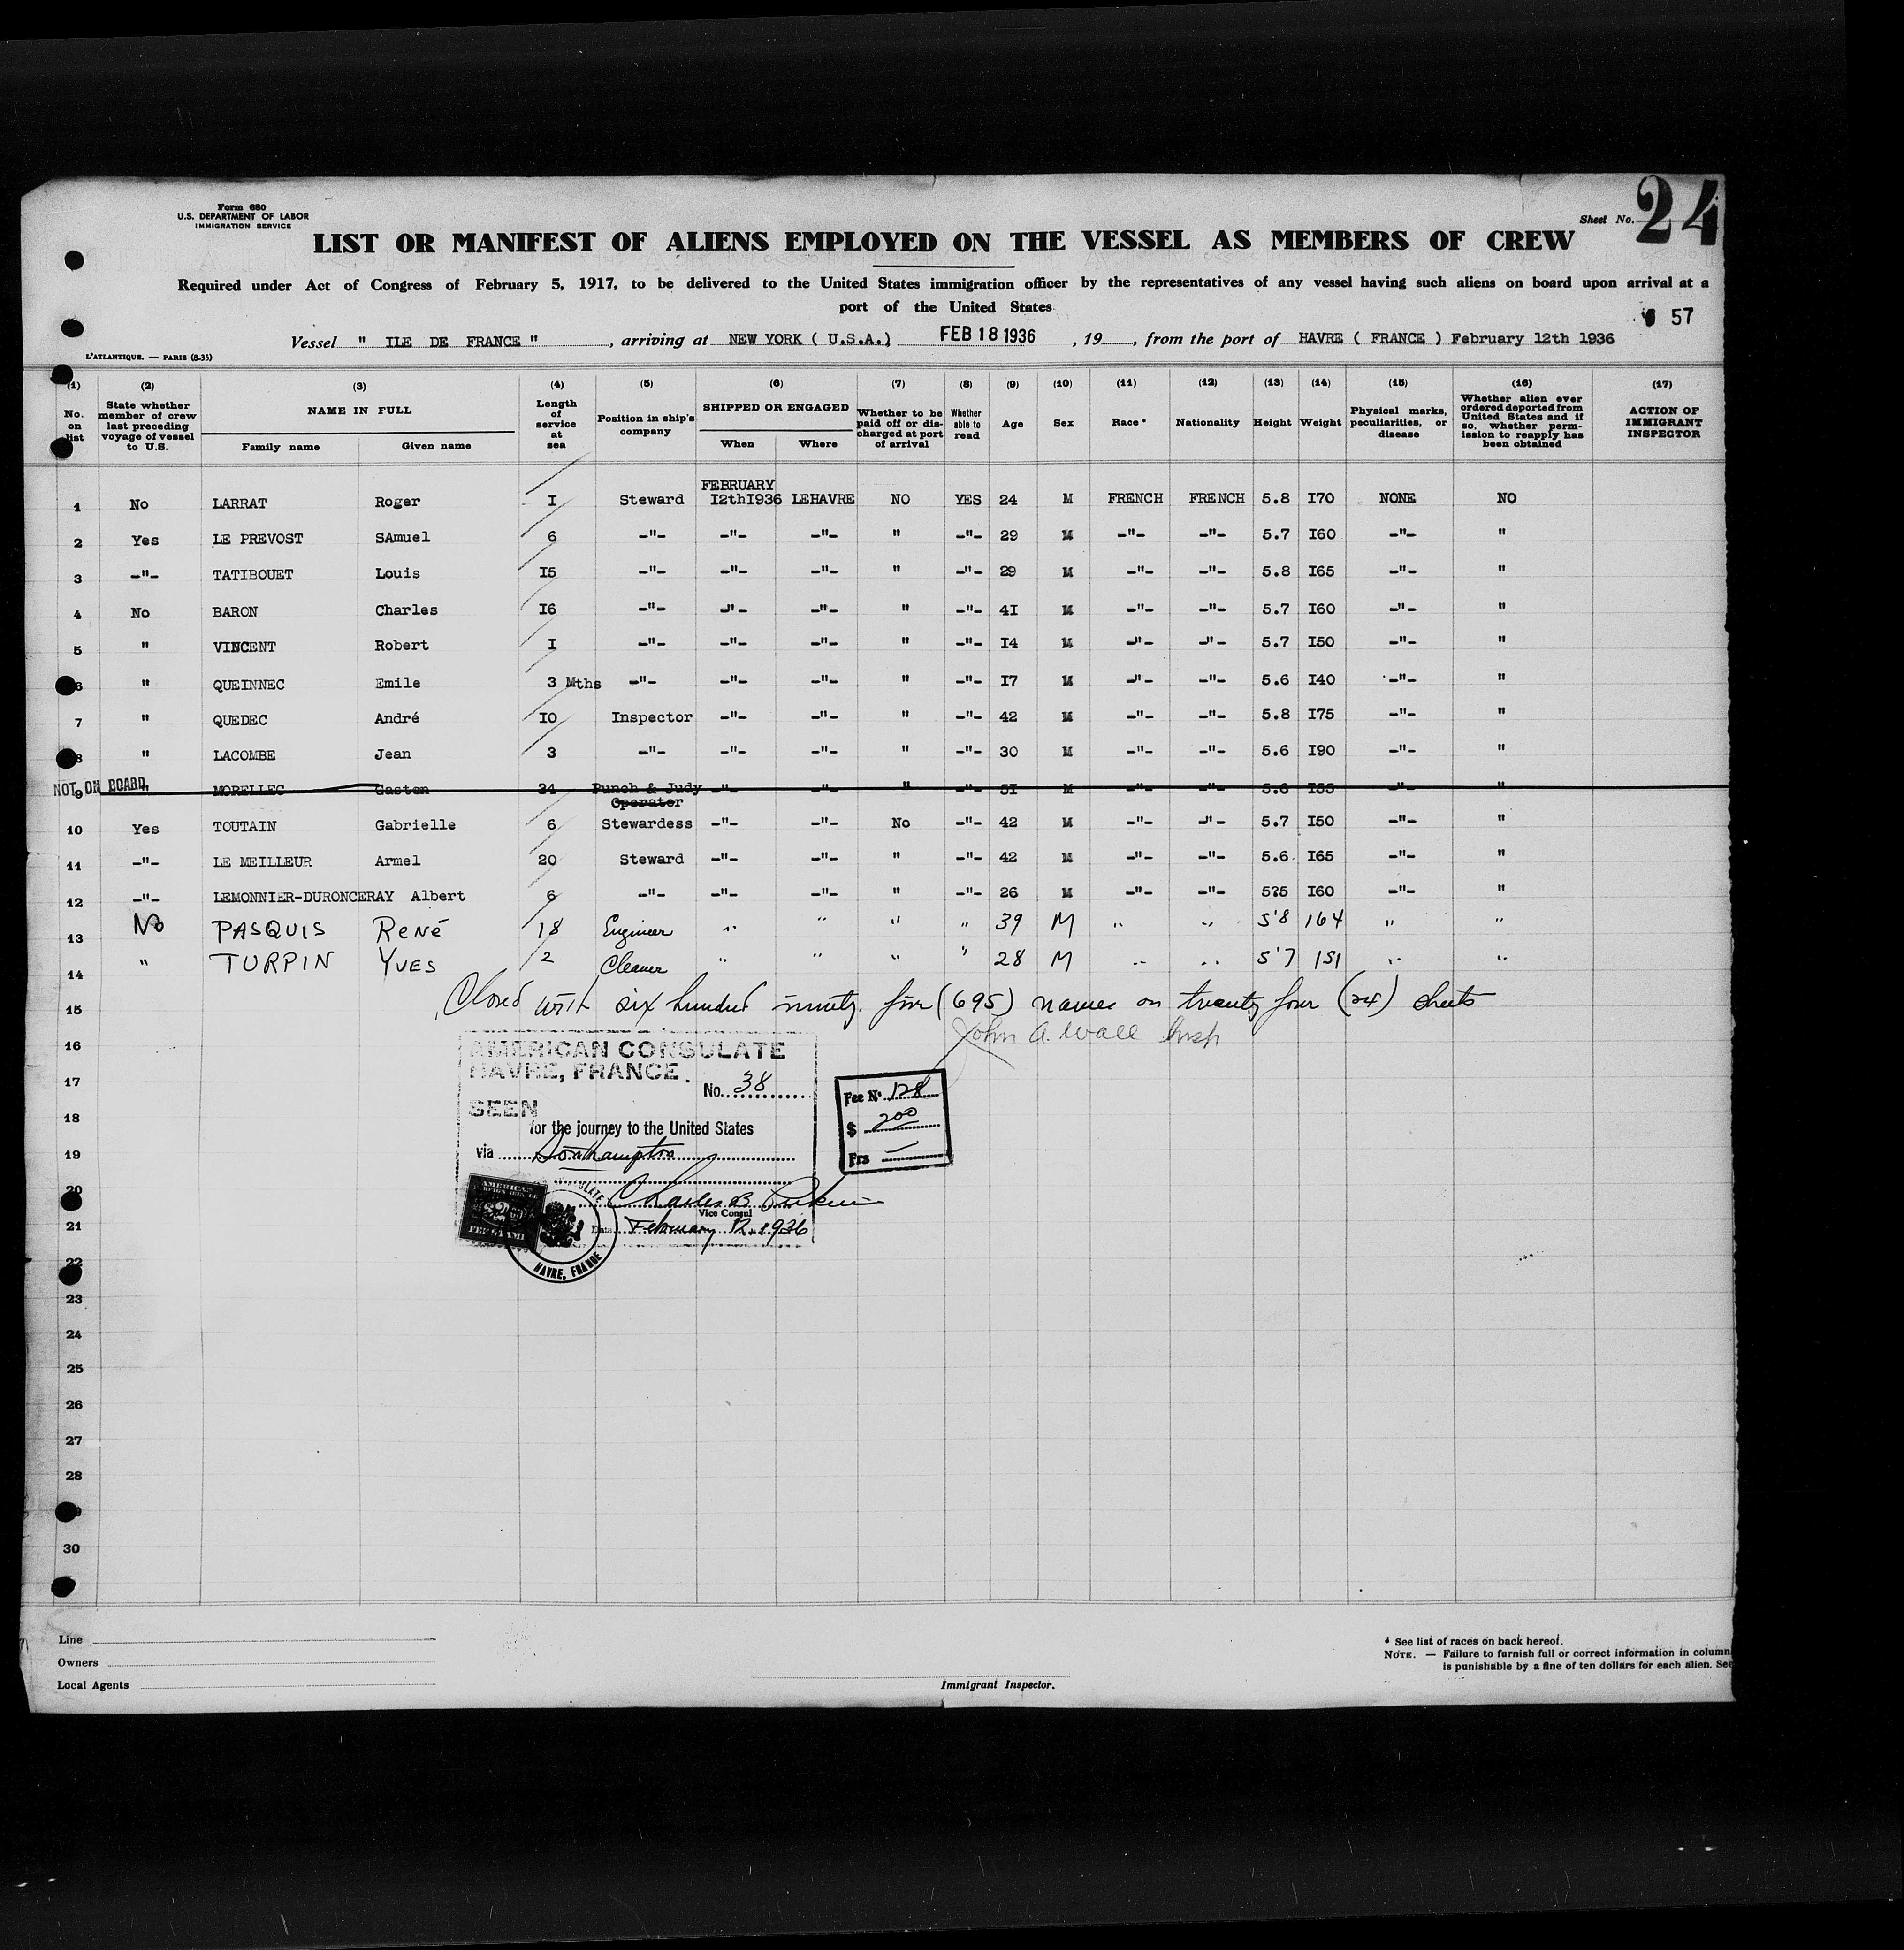 Form 680
U.S. DEPARTMENT OF LABOR
IMMIGRATION SERVICE
Sheet No. 24
LIST OR MANIFEST OF ALIENS EMPLOYED ON THE VESSEL AS MEMBERS OF CREW
Required under Act of Congress of February 5, 1917, to be delivered to the United States immigration officer by the representatives of any vessel having such aliens on board upon arrival at a
port of the United States
57
Vessel " ILE DE FRANCE " , arriving at NEW YORK ( U.S.A.) FEB 18 1936 , 19 , from the port of HAVRE ( FRANCE ) February 12th 1936
L'ATLANTIQUE. — PARIS (8-35)
(1) No. on list
(2) State whether member of crew last preceding voyage of vessel to U.S.
(3) NAME IN FULL Family name Given name
(4) Length of service at sea
(5) Position in ship's company
(6) SHIPPED OR ENGAGED When Where
(7) Whether to be paid off or discharged at port of arrival
(8) Whether able to read
(9) Age
(10) Sex
(11) Race *
(12) Nationality
(13) Height
(14) Weight
(15) Physical marks, peculiarities, or disease
(16) Whether alien ever ordered deported from United States and if so, whether permission to reapply has been obtained
(17) ACTION OF IMMIGRANT INSPECTOR
1 No LARRAT Roger I Steward FEBRUARY I2thI936 LEHAVRE NO YES 24 M FRENCH FRENCH 5.8 I70 NONE NO
2 Yes LE PREVOST SAmuel 6 -"- -"- -"- " -"- 29 M -"- -"- 5.7 I60 -"- "
3 -"- TATIBOUET Louis I5 -"- -"- -"- " -"- 29 M -"- -"- 5.8 I65 -"- "
4 No BARON Charles I6 -"- -"- -"- " -"- 4I M -"- -"- 5.7 I60 -"- "
5 " VINCENT Robert I -"- -"- -"- " -"- I4 M -"- -"- 5.7 I50 -"- "
6 " QUEINNEC Emile 3 Mths -"- -"- -"- " -"- I7 M -"- -"- 5.6 I40 -"- "
7 " QUEDEC André IO Inspector -"- -"- " -"- 42 M -"- -"- 5.8 I75 -"- "
8 " LACOMBE Jean 3 -"- -"- -"- " -"- 30 M -"- -"- 5.6 I90 -"- "
NOT ON BOARD
9 MORELLEC Gaston 34 Punch & Judy Operator -"- -"- " -"- 5I M -"- -"- 5.6 I55 -"- "
10 Yes TOUTAIN Gabrielle 6 Stewardess -"- -"- No -"- 42 M -"- -"- 5.7 I50 -"- "
11 -"- LE MEILLEUR Armel 20 Steward -"- -"- " -"- 42 M -"- -"- 5.6 I65 -"- "
12 -"- LEMONNIER-DURONCERAY Albert 6 -"- -"- -"- " -"- 26 M -"- -"- 5?5 I60 -"- "
13 No PASQUIS René 18 Engineer " " " " 39 M " " 5'8 164 " "
14 " TURPIN YVES 2 Cleaner " " " " 28 M " " 5'7 151 " "
15 Closed with six hundred ninety five (695) names on twenty four (24) sheets
16 John A. Wall Insp
17
18
19
20
21
22
23
24
25
26
27
28
29
30
AMERICAN CONSULATE
HAVRE, FRANCE.
No. 38
SEEN
for the journey to the United States
via Southampton
Charles B.
Vice Consul
Date February 12. 1936
HAVRE, FRANCE
Fee No 128
$ 200
Frs —
Line
Owners
Local Agents
Immigrant Inspector.
* See list of races on back hereof.
NOTE. — Failure to furnish full or correct information in column
is punishable by a fine of ten dollars for each alien. See